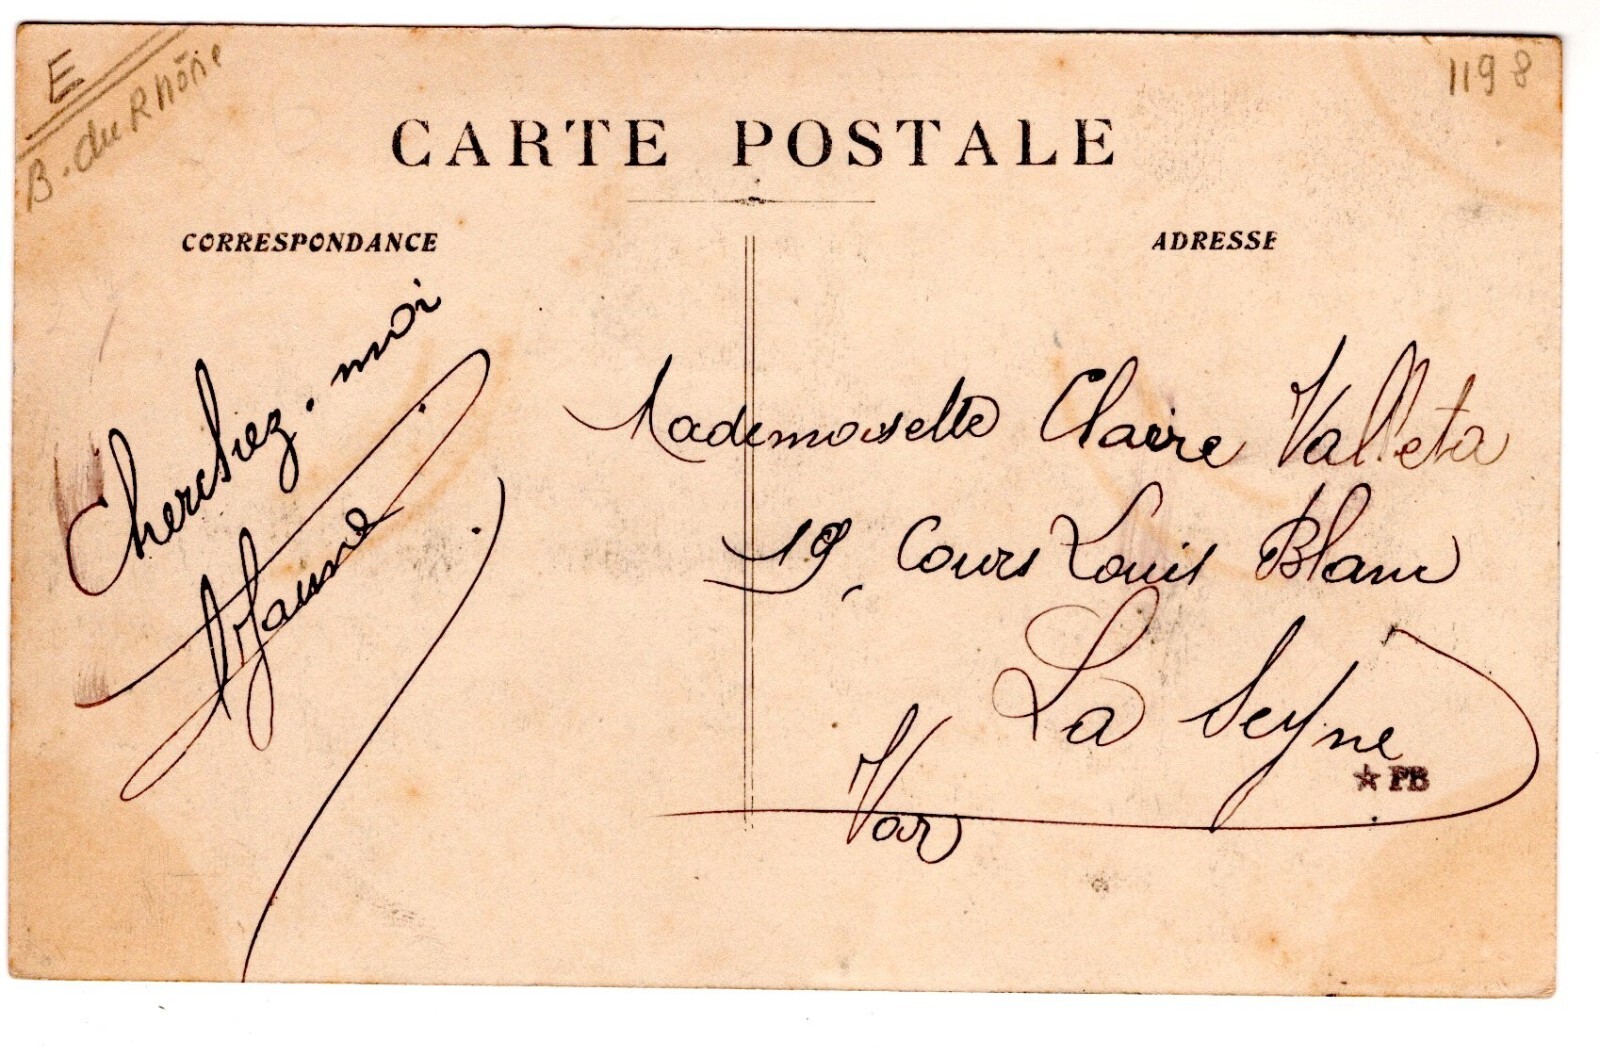 E
B. du Rhône
1198
CARTE POSTALE
CORRESPONDANCE
ADRESSE
Cherchez-moi
Mademoiselle Claire Valleta
19, Cours Louis Blanc
La Seyne
Var
★ PB